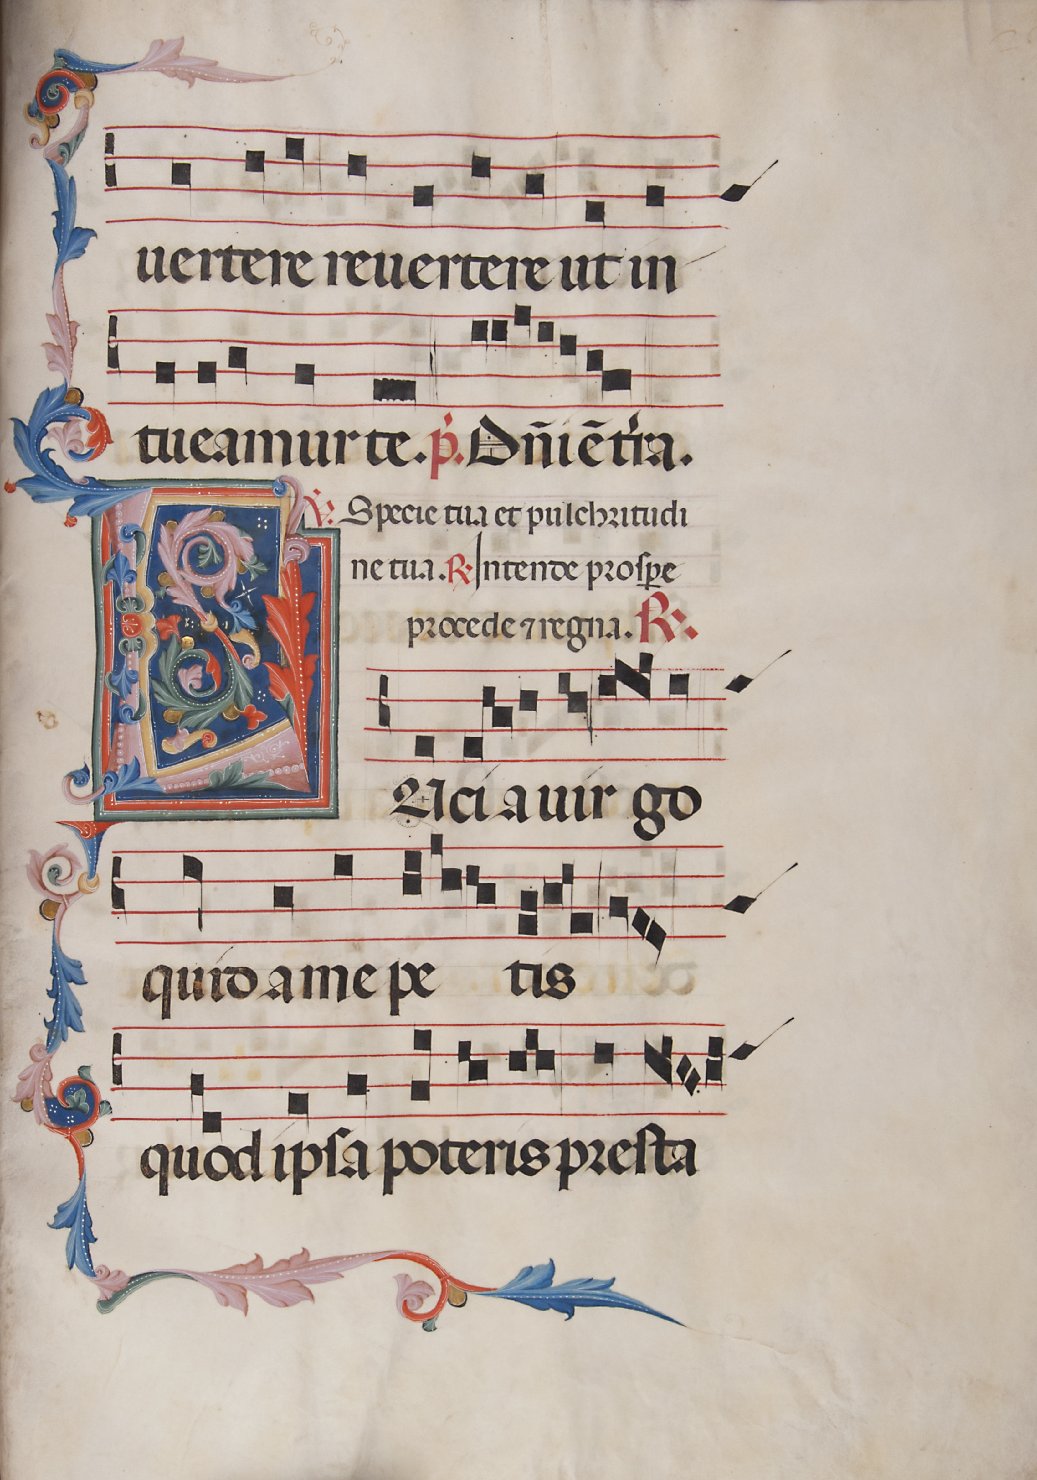 uertere reuertere ut in
tueamur te. p̄. Dn̄i ē t̄ra.
℣. Specie tua et pulchritudi
ne tua. ℟ Intende prospe
procede ⁊ regna. ℟.
LUcia uirgo
quid a me petis
quod ipsa poteris presta